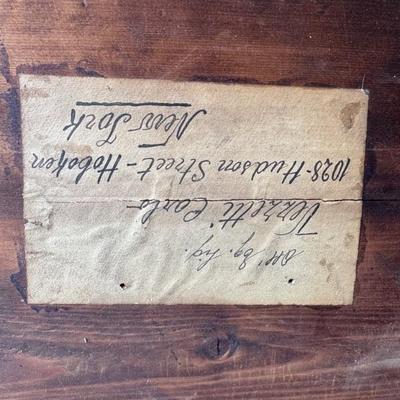 All' Eg. Sig.
Verzetti Carlo
1028-Hudson Street-Hoboken
New York